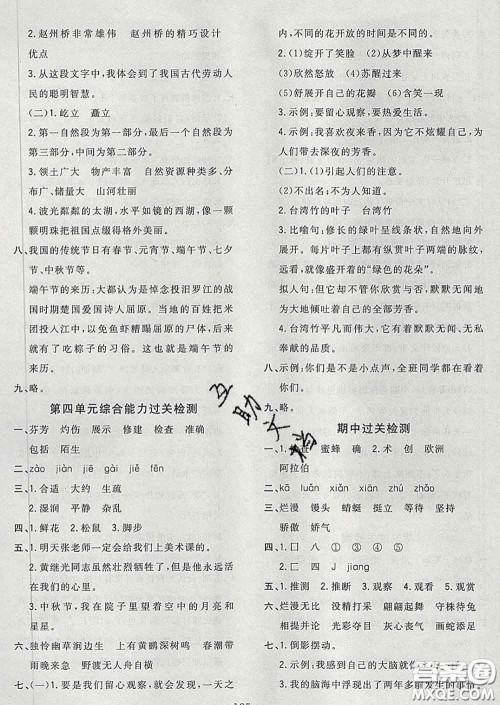 2. 赵州桥非常雄伟 赵州桥的精巧设计
优点
3. 从这段文字中,我体会到了我国古代劳动人
民的聪明智慧。
(二)1. 屹立 矗立
2. 第一自然段为第一部分,最一个自然段为
第三部分,其中间为第二部分。
3. 领土广大 物产丰富 自然资源种类多、分
布广、储量大 山河壮丽
4. 波光粼粼的太湖,水平如镜的西湖,像一颗
颗明珠把祖国点缀得格外美丽。
八、我国的传统节日有春节、元宵节、端午节、七夕
节、中秋节等。
端午节的来历:大都认为是悼念投汨罗江的战
国时期楚国爱国诗人屈原。当地的百姓把米
团投入江中,以免鱼虾糟蹋屈原的尸体,后来就
有了吃粽子的习俗。这就是端午节的来历。
九、略。
第四单元综合能力过关检测
一、芬芳 灼伤 展示 修建 检查 准确
包括 陌生
二、zào jiàn jiē gài jié fēi
三、1. 合适 大约 生疏
2. 湿润 平静 杂乱
四、1. 鲜花 2. 松鼠 3. 脚步
五、1. 明天张老师一定会给我们上美术课的。
2. 黄继光同志虽然壮烈牺牲了,但是他永远活
在我们的心里。
3. 中秋节,我在院子里望着夜空中的月亮和
星星。
六、独怜幽草涧边生 上有黄鹂深树鸣 春潮带
雨晚来急 野渡无人舟自横
七、(一)1. 要是我们留心观察,就会发现,一天之
内,不同的花开放的时间
是不同的。
2. (1)绽开了笑脸 (2)从梦中醒来
(3)欣然怒放 (4)苏醒过来
(5)展示自己的花瓣 (6)含笑一现
3. 示例:要留心观察,要热爱生活。
4. 示例:我喜欢夜来香,因为它不炫耀自己,为
人们带来了深夜的芳香。
(二)1. (1)引起人们的注意。
(2)
2. 台湾竹的叶子 台湾竹
3. 比喻句:修长的绿叶呈线条状,自然地向外
展开。每片叶子上都有纵贯叶子两端的脉纹,
远远看去,就像一朵舒展着的“绿色的花朵”。
拟人句:但它不管你欣赏与否,都默默无闻地
为大地倾吐着自己的全部芳香。
4. 台湾竹平凡而伟大,它有着默默无闻、无私
奉献的精神。
八、示例:亲爱的同学们,全班同学都在关注着
你们。
九、略。
期中过关检测
蜜蜂 确 2. 术 创 欧洲
阿拉伯
二、kā luǎn xiàn zhú zhǎo
三、烂漫 馒头 蜻蜓 挺立 等待 坚持
骄傲 娇气
四、1. 囗 八 ⑤ ④ ① ⑤
2. 四 J jiang
五、1. 推测 2. 推断 3. 观察 4. 观赏
六、烂漫无比 没精打采 翩翩起舞 守株待兔
相提并论 光彩夺目 南辕北辙 画蛇添足
七、1. 倒影摆动。
2. 示例:我感觉自己的大脑就像
我的脑海中浮现出了两年多前发生的事情。
互助文档